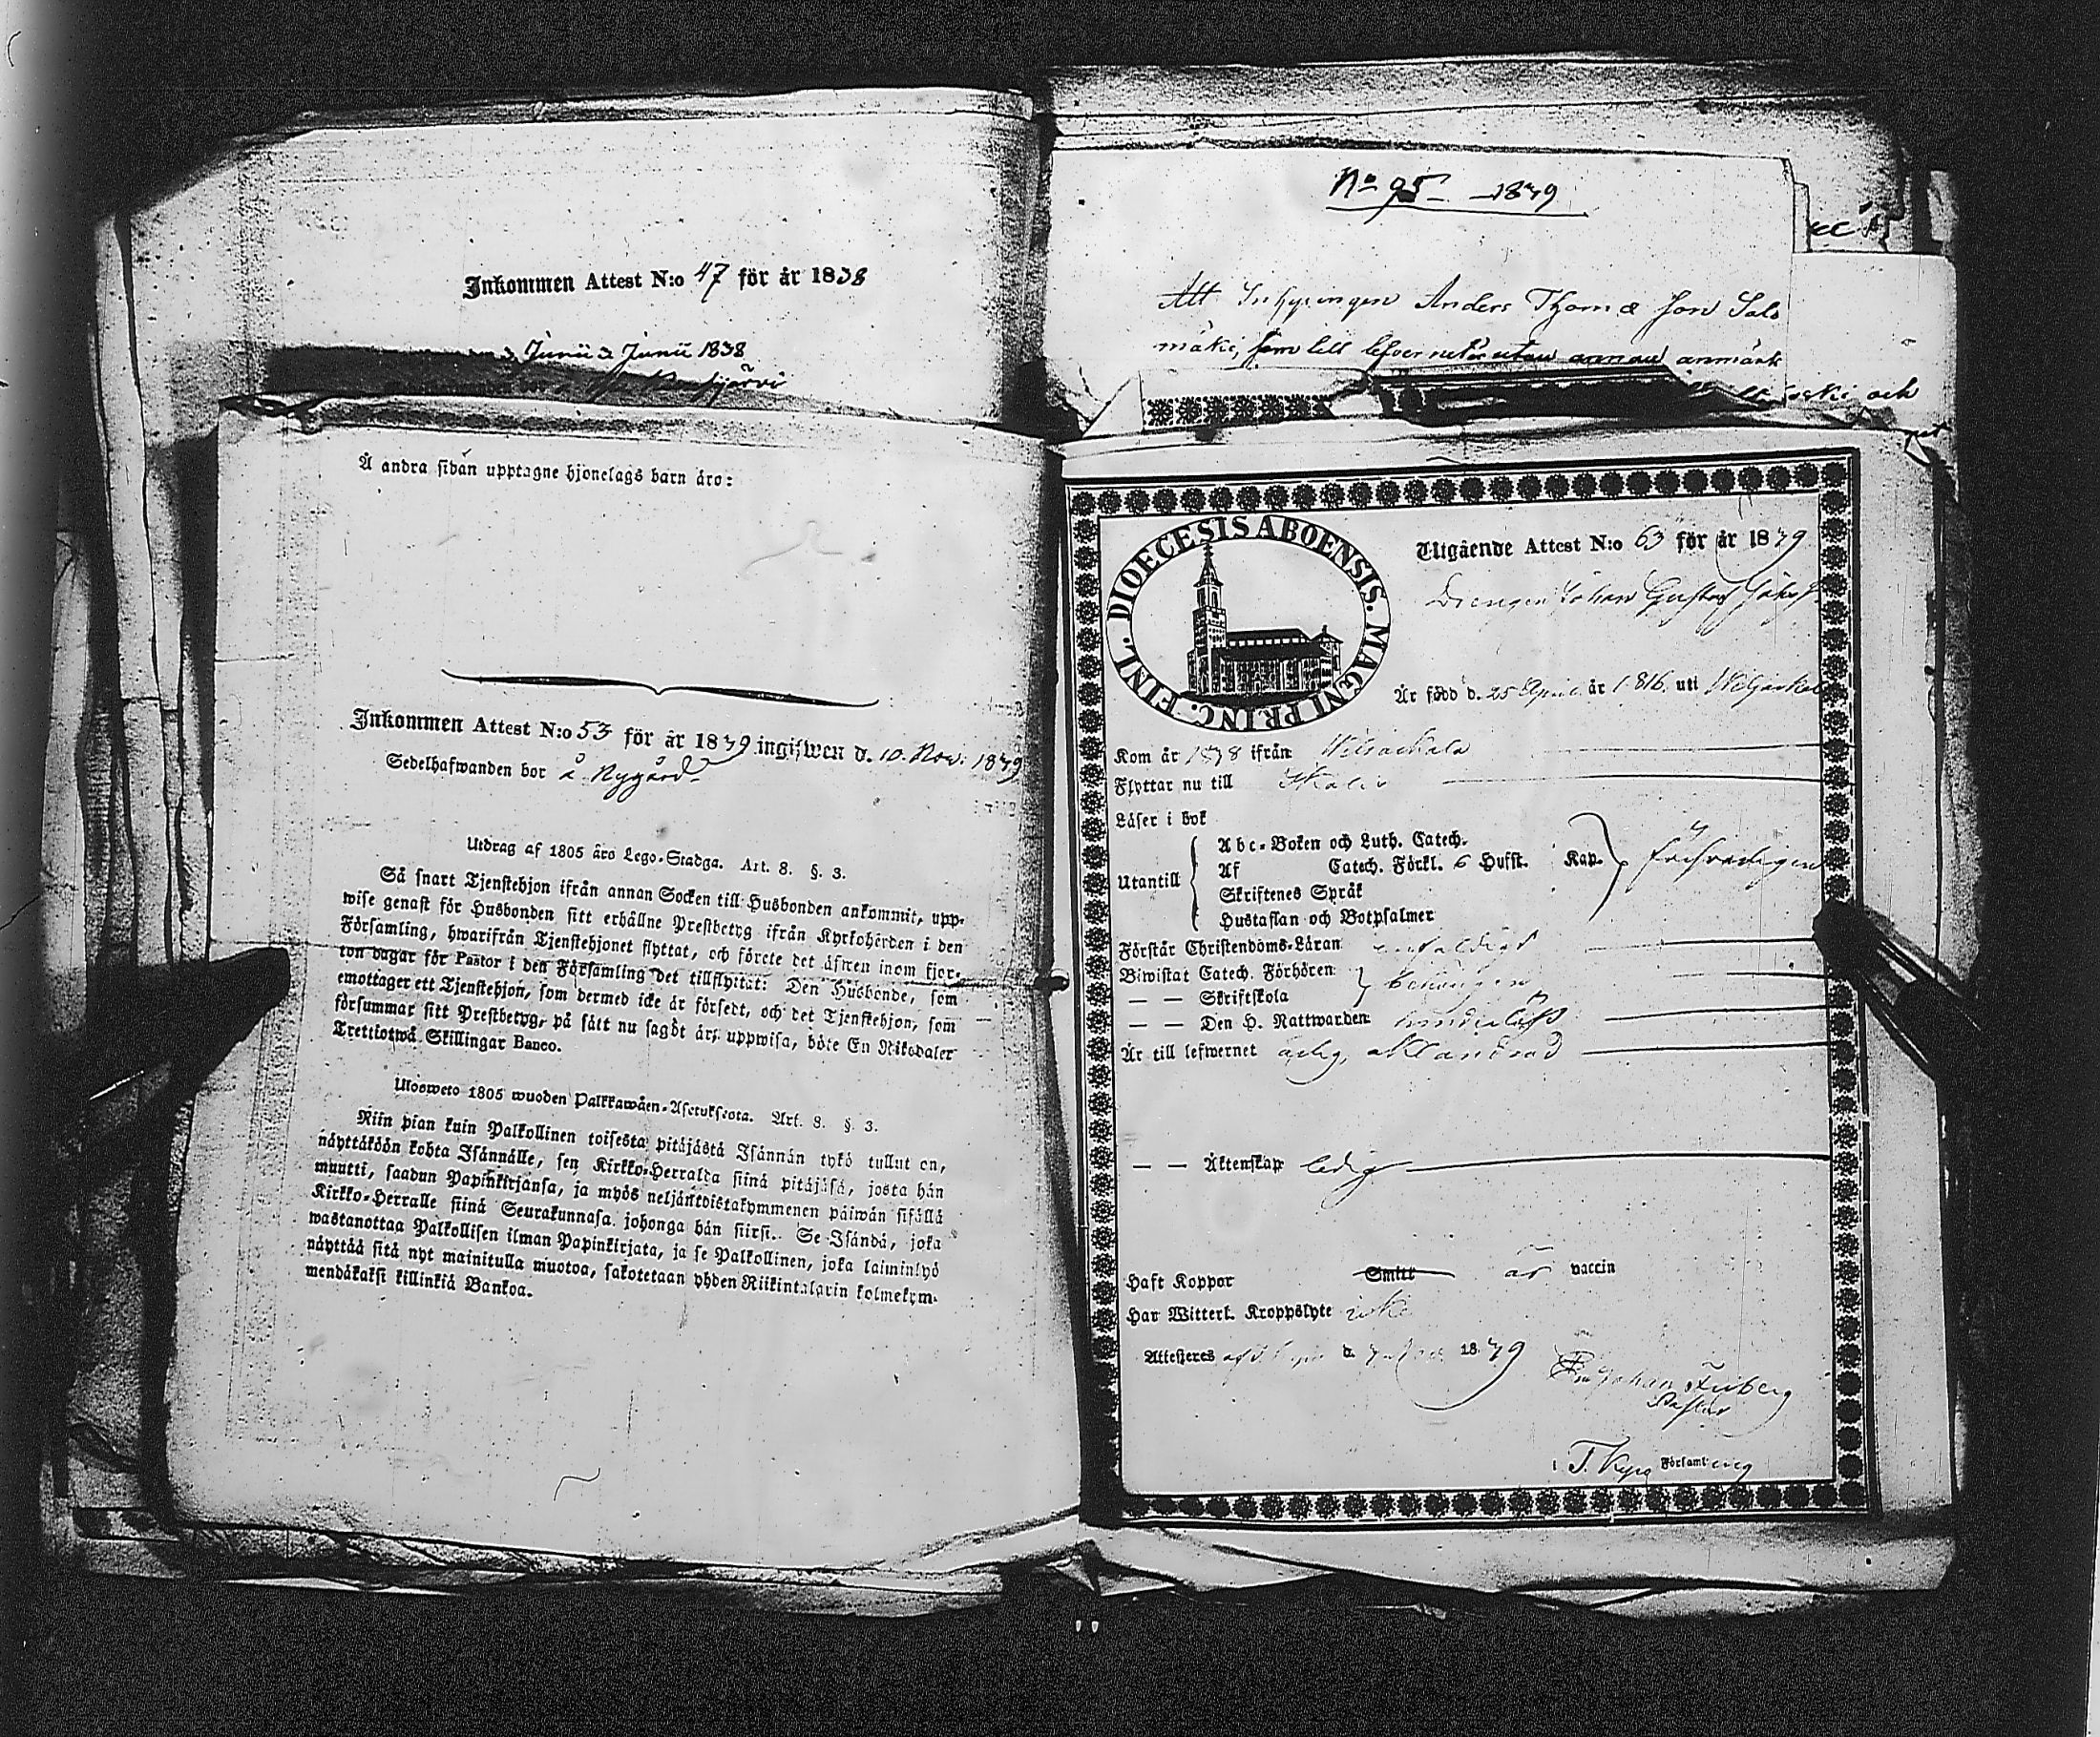 Inkommen Attest N:o 47 för år 1838
Junii 1838
Å andra sidan upptagne hjonelags barn äro:
Inkommen Attest N:o 53 för år 1839 ingifwen d. 10. Nov: 1839
Sedelhafwanden bor å Nygård
Utdrag af 1805 års Lego-Stadga. Art. 8. §. 3.
Så snart Tjenstehjon ifrån annan Socken till Husbonden ankommit, upp-
wise genast för Husbonden sitt erhållne Prestbetyg ifrån Kyrkoherden i den
Församling, hwarifrån Tjenstehjonet flyttat, och förete det äfwen inom fjor-
ton dagar för Pastor i den Församling det tillflyttat: Den Husbonde, som
emottager ett Tjenstehjon, som dermed icke är försedt, och det Tjenstehjon, som
försummar sitt Prestbetyg, på sätt nu sagdt är, uppwisa, böte En Riksdaler
Trettiotwå Skillingar Banco.
Ulosweto 1805 wuoden Palkkawäen-Asetuksesta. Art. 8. §. 3.
Niin pian kuin Palkollinen toisesta pitäjästä Isännän tykö tullut on,
näyttäköön kohta Isännälle, sen Kirkko-Herralda siinä pitäjäsä, josta hän
muutti, saadun Papinkirjansa, ja myös neljäntoistakymmenen päiwän sisällä
Kirkko-Herralle siinä Seurakunnasa johonga hän siirsi. Se Isändä, joka
wastanottaa Palkollisen ilman Papinkirjata, ja se Palkollinen, joka laiminlyö
näyttää sitä nyt mainitulla muotoa, sakotetaan yhden Riikintalarin kolmekym-
mendäkaksi killinkiä Bankoa.
No 95 1839
Att Inhysingen Anders Thomæ Son Salo
mäki, som till lefvernet är utan annan anmärk
och
DIOECESIS ABOENSIS. MAGNI PRINC. FINL.
Utgående Attest N:o 63 för år 1839
Drengen Johan Gustaf
Är född d. 25 April år 1816. uti
Kom år 1838 ifrån
Flyttar nu till
Läser i bok
Utantill
Abc-Boken och Luth. Catech.
Af Catech. Förkl. 6 Hufst. Kap.
Skriftenes Språk
Hustaflan och Botpsalmer
Förstår Christendoms-Läran
Biwistat Catech. Förhören
— — Skriftskola
— — Den H. Nattwarden
Är till lefwernet ärlig,
— — Äktenskap ledig
Haft Koppor Smitt är vaccin
Har Witterl. Kroppslyte icke
Attesteres d. 1839
Johan
Pastor
i T. Kyro Församling